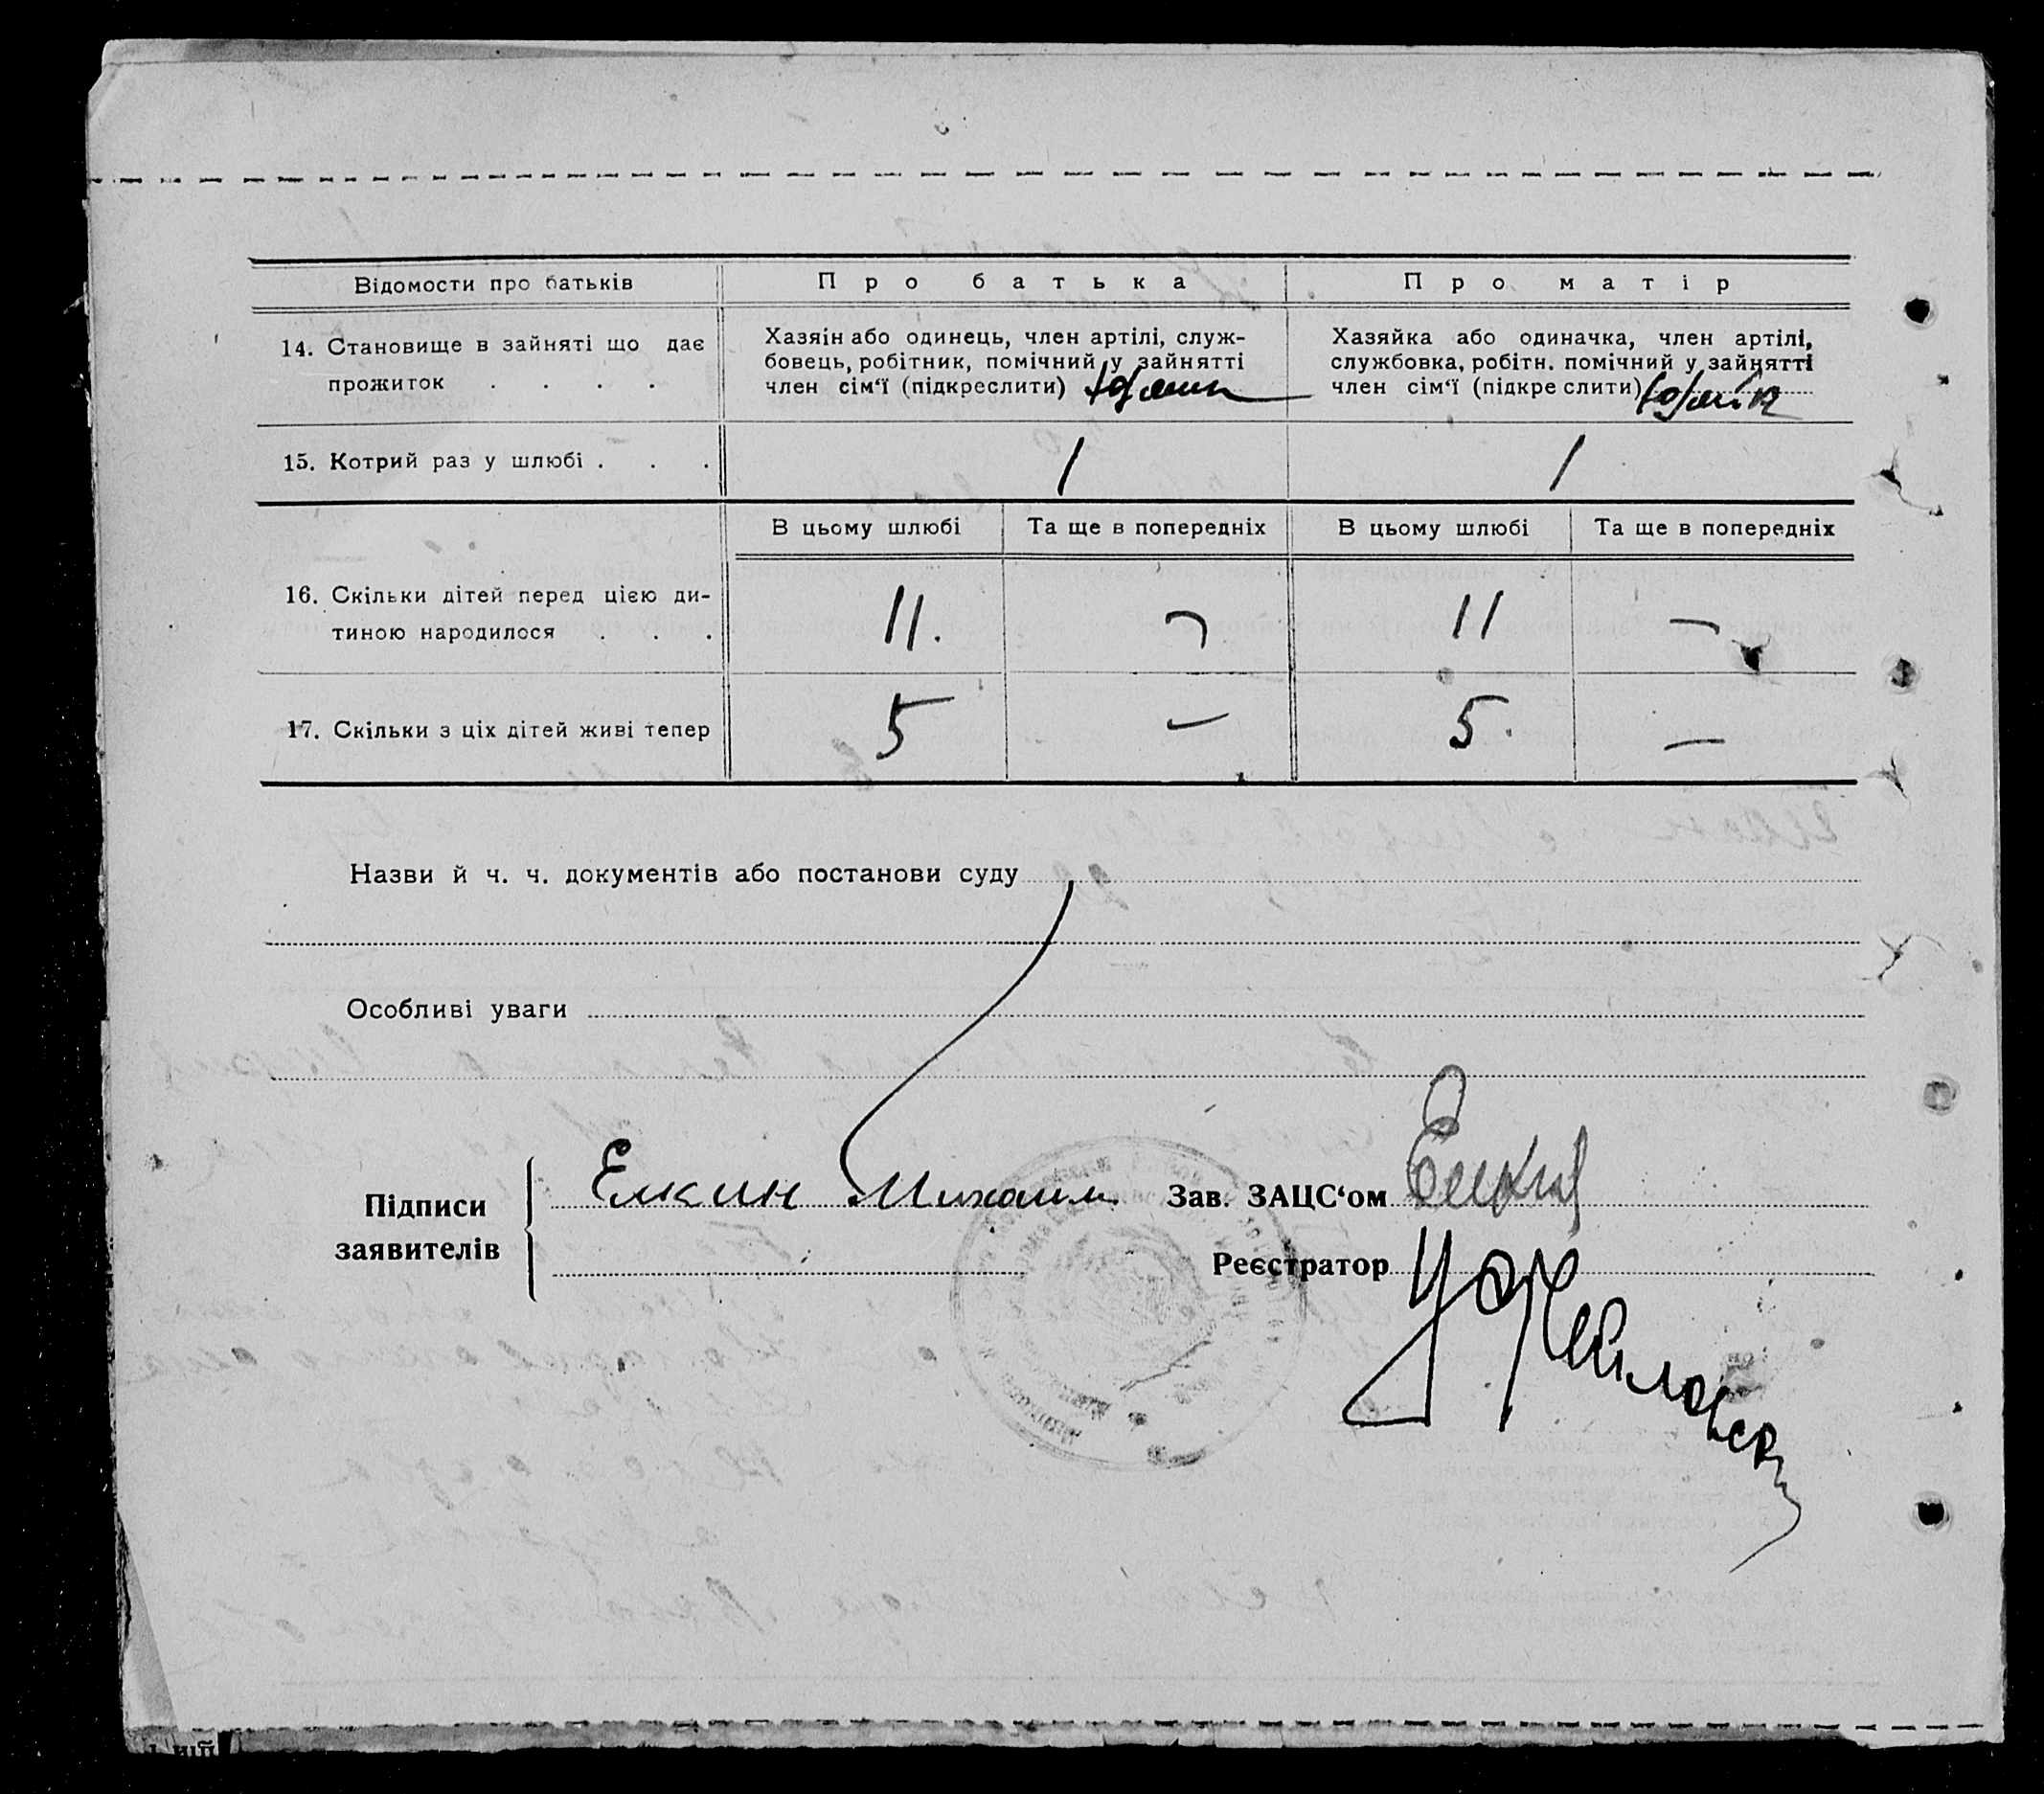 Відомости про батьків
Про батька
Про матір
14. Становище в зайняті що дає
прожиток . . . .
Хазяін або одинець, член артілі, служ-
бовець, робітник, помічний у зайнятті
член сім‘ї (підкреслити)
Хазяйка або одиначка, член артілі,
службовка, робітн. помічний у зайнятті
член сім‘ї (підкре слити)
15. Котрий раз у шлюбі . . .
1
1
В цьому шлюбі
Та ще в попередніх
В цьому шлюбі
Та ще в попередніх
16. Скільки дітей перед цією ди-
тиною народилося . . .
11.
-
11
-
17. Скільки з ціх дітей живі тепер
5
-
5.
-
Назви й ч. ч. документів або постанови суду
Особливі уваги
Підписи
заявителів
Елкин Михаил
Зав. ЗАЦС‘ом
Реєстратор